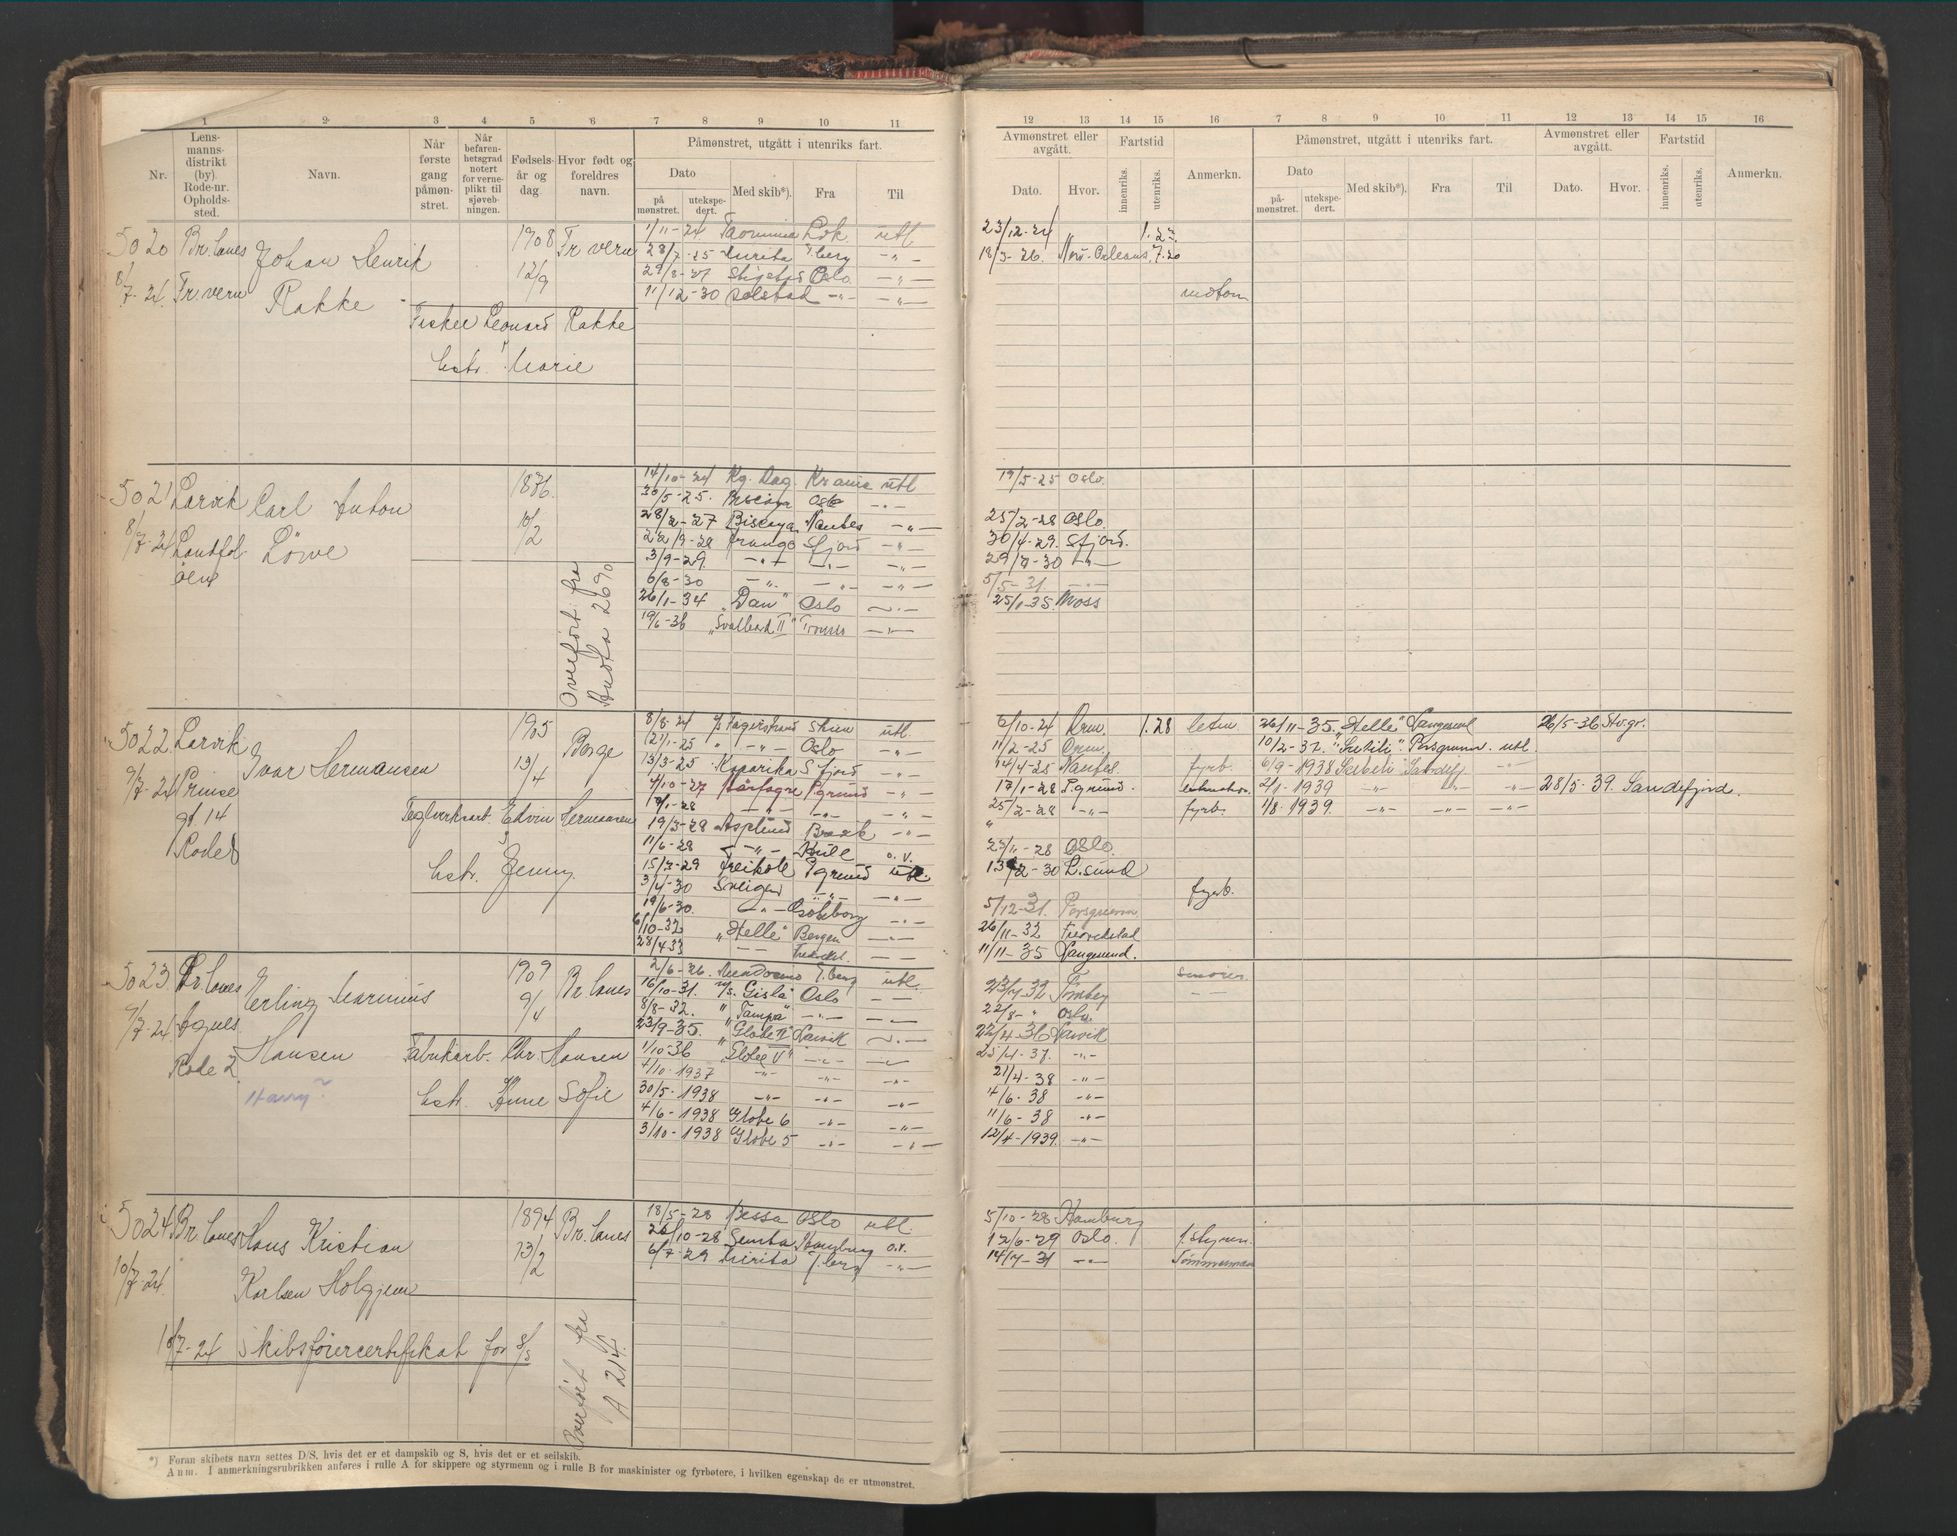 1 2 3 4 5 6 7 8 9 10 11
Nr. Lensmannsdistrikt (by). Rode-nr. Opholdssted. Navn. Når første gang påmønstret. Når befarenhetsgrad notert for verneplikt til sjøvebningen. Fødselsår og dag. Hvor født og foreldres navn. Påmønstret, utgått i utenriks fart.
Dato Med skib*). Fra Til
på mønstret. utekspedert.
5020 Br.lanes Johan Henrik 1908 Fr vern 1/11-24 Taormina Lvk. utl
28/7-25 T.berg -"-
8/7-24 Fr.vern Rakke 12/9 29/8-27 Oslo -"-
11/12-30 Solstad -"- -"-
Fisker Leonard Rakke
hstr. Marie
5021 Larvik Carl Anton 1876. 14/10-24 Kg. Dag. Krania utl
30/5-25. Biscaya Oslo -"-
8/7-24 Løve 10/2 28/2-27 Biscaya Nantes -"-
Sfjord -"-
øen 3/9-29. -"- -"- -"-
6/8-30 -"- -"- -"-
26/1-34 "Dan" Oslo -"-
19/6-36 "Svalbard II" Tromsø -"-
Overført fra
Andøa 2690
5022 Larvik Ivar Hermansen 1905 Borge 8/8-24 Fagerstrand Skien utl.
12/1-25 " -"- Oslo -"-
9/7-24 Prinse 13/4 13/3-25 S fjord -"-
gt 14 4/10-27 Hårfagre P.grund -"-
Rode 8 Teglverksarb. Edvin Hermansen -"- -"- -"-
19/3-28 Asplund Brevik -"-
hstr. Jenny 11/6-28 -"- Hull o.v.
15/3-29 P grund utl.
3/4-30 -"- -"-
19/6-30. -"- Göteborg -"-
6/10-32 "Helle" Bergen -"-
28/4 33 -"- -"-
5023 Br.lanes Erling Marinius 1909 Br lanes 2/6-26. Mendocino T.berg utl.
9/4 16/10-31. M/s. Gisla Oslo -"-
9/7-24 Agnes 8/8-32. "Tampa" -"- -"-
Rode 2 Hansen 23/9-35. "Globe II" Larvik -"-
Fabrikarb. Chr. Hansen 1/10-36 "Globe V" -"- -"-
4/10-1937 -"- -"- -"-
Harry ~ hstr. Anne Sofie 30/5-1938 -"- -"- -"-
4/6-1938 Globe 6 -"- -"-
3/10-1938 Globe 5 -"- -"-
5024 Br.lanes Hans Kristian 1894 Br.lanes 18/5-28 Bessa Oslo utl.
13/2 26/10-28 Senta Hamburg o.v.
10/7-24. Karlsen Holgjem 6/7-29 T.berg -"-
10/7-24 Skibsførercertifikat for 8/8
Overført fra
A 214.
*) Foran skibets navn settes D/S, hvis det er et dampskib og S, hvis det er et seilskib.
Anm. I anmerkningsrubrikken anføres i rulle A for skippere og styrmenn og i rulle B for maskinister og fyrbøtere, i hvilken egenskap de er utmønstret.
12 13 14 15 16 7 8 9 10 11 12 13 14 15 16
Avmønstret eller avgått. Fartstid Anmerkn. Påmønstret, utgått i utenriks fart. Avmønstret eller avgått. Fartstid Anmerkn.
Dato. Hvor. innenriks. utenriks. Dato på mønstret. utekspedert. Med skib*). Fra Til Dato. Hvor. innenriks. utenriks.
23/12-24 "
18/3-26. New-Orleans. 7.20
19/5-25 Oslo.
25/2-28 Oslo.
30/4-29. Sfjord.
29/7-30 -"-
5/5-31. -"-
25/1-35. Moss
6/10-24 Drm. 1.28 26/11-35. "Helle" Langesund 26/5-36 Stv.gr.
11/2-25 Drm. Porsgrunn. utl.
14/4-25 Nantes. fyrb. 6/9-1938 Sandefj. -"-
17/1-28 P.grund. 2/1-1939 -"- -"- -"- 28/5-39. Sandefjord.
25/2-28 -"- fyrb. 1/8-1939. -"- -"- -"-
"
Oslo.
L.sund
fyrb.
5/12-31. Porsgrunn
26/11-32 Fredrikstad
11/11-35 Langesund.
smører
23/7-32 Tønsberg -"-
22/8-" Oslo.
22/4-36 Larvik
25/4-37. -"-
21/4-38 -"-
4/6-38 -"-
11/6-38 -"-
12/4-1939. -"-
5/10-28 Hamburg
12/6-29 Oslo. 1.styrm.
14/7-31 -"- Tømmermann